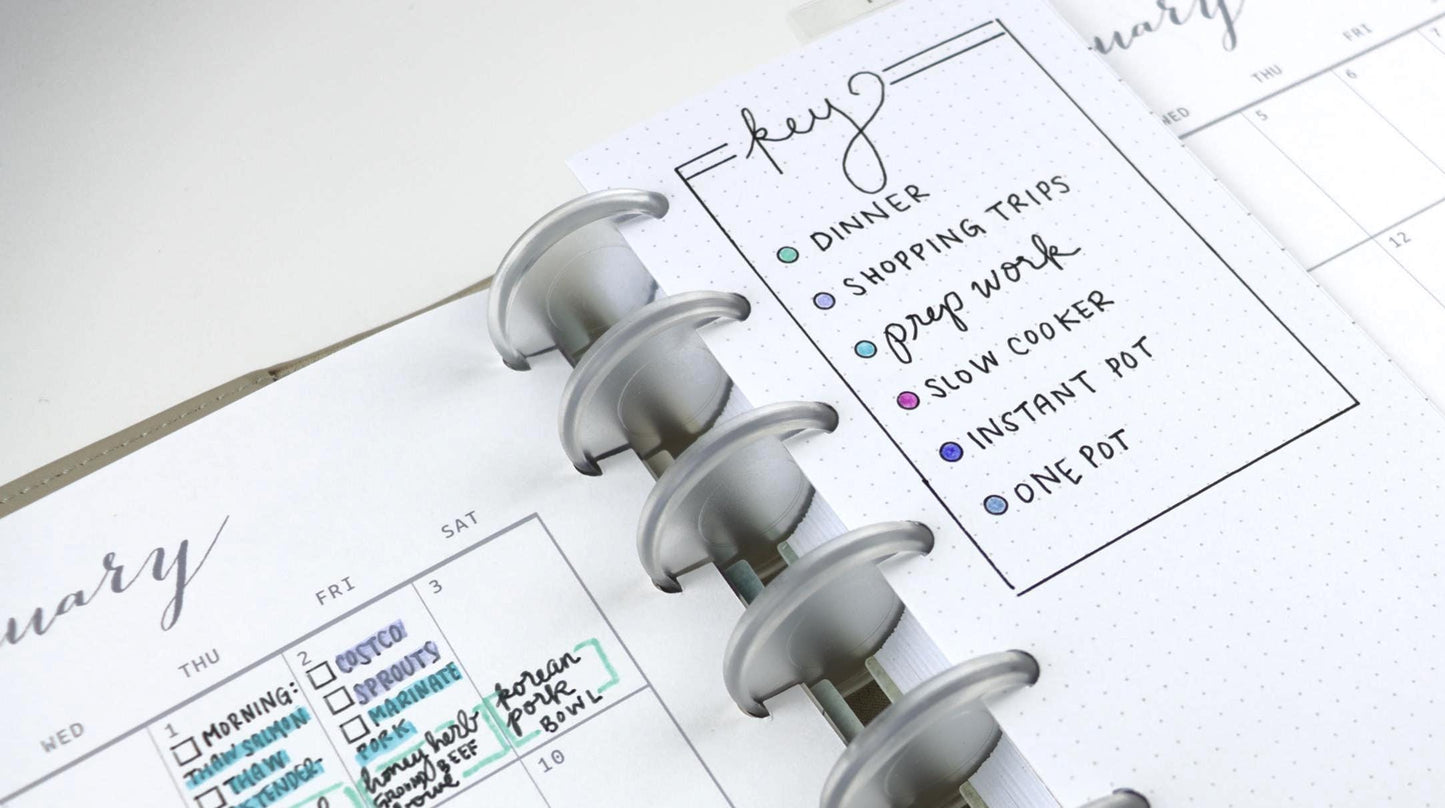 key
DINNER
SHOPPING TRIPS
prep work
SLOW COOKER
INSTANT POT
ONE POT
uary
WED
THU
FRI
SAT
1
MORNING:
THAW SALMON
THAW
2
COSTCO
SPROUTS
MARINATE
PORK
honey herb
GROUND BEEF
3
korean
pork
BOWL
10
uary
WED
THU
FRI
5
6
7
12